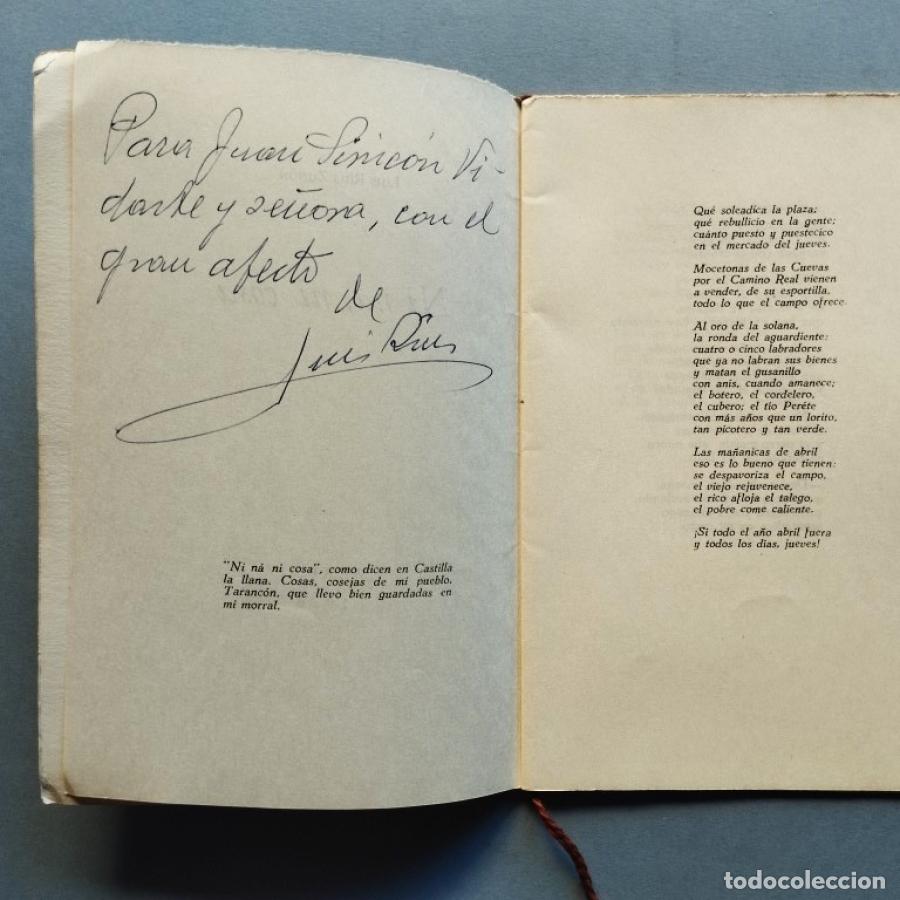 Para Juan Simeón Vi-
darte y señora, con el
gran afecto
de
Luis Rius
"Ni ná ni cosa", como dicen en Castilla
la llana. Cosas, cosejas de mi pueblo,
Tarancón, que llevo bien guardadas en
mi morral.
Qué soleadica la plaza;
qué rebullicio en la gente;
cuánto puesto y puestecico
en el mercado del jueves.
Mocetonas de las Cuevas
por el Camino Real vienen
a vender, de su esportilla,
todo lo que el campo ofrece.
Al oro de la solana,
la ronda del aguardiente:
cuatro o cinco labradores
que ya no labran sus bienes
y matan el gusanillo
con anís, cuando amanece;
el botero, el cordelero,
el cubero; el tío Peréte
con más años que un lorito,
tan picotero y tan verde.
Las mañanicas de abril
eso es lo bueno que tienen:
se despavoriza el campo,
el viejo rejuvenece,
el rico afloja el talego,
el pobre come caliente.
¡Si todo el año abril fuera
y todos los días, jueves!
todocoleccion